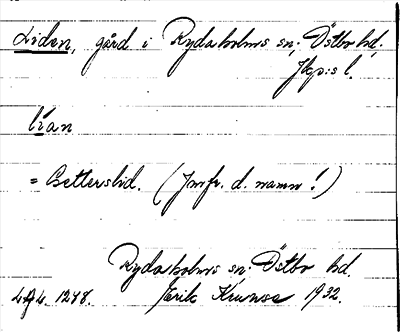 Liden, gård i Rydaholms sn; Östbo hd,
Jkp:s l.
lian
= Betterslid. (Jmfr. d. namn!)
Rydaholms sn. Östbo hd.
1248. Erik Krunse 1932.